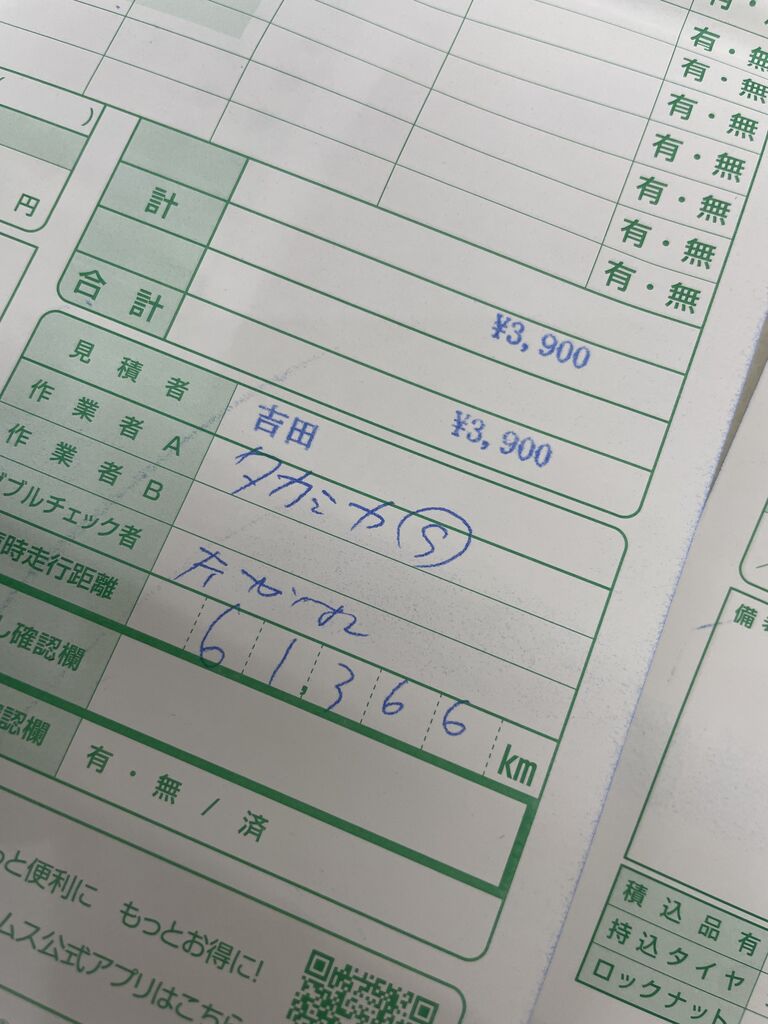 有・無
有・無
有・無
有・無
有・無
有・無
有・無
)
円
計
¥3,900
合計
¥3,900
見積者 吉田
作業者A タカミカ Ⓢ
作業者B
ダブルチェック者
時走行距離 61,366 km
し確認欄
認欄 有・無/済
っと便利に もっとお得に!
ムス公式アプリはこちら
備考
積込品有
持込タイヤ
ロックナット